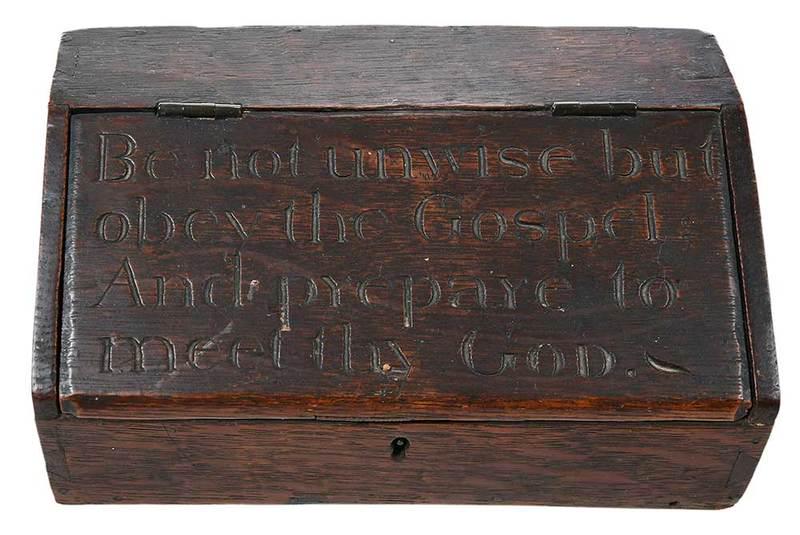 Be not unwise but
obey the Gospel:
And prepare to
meet thy GOD.